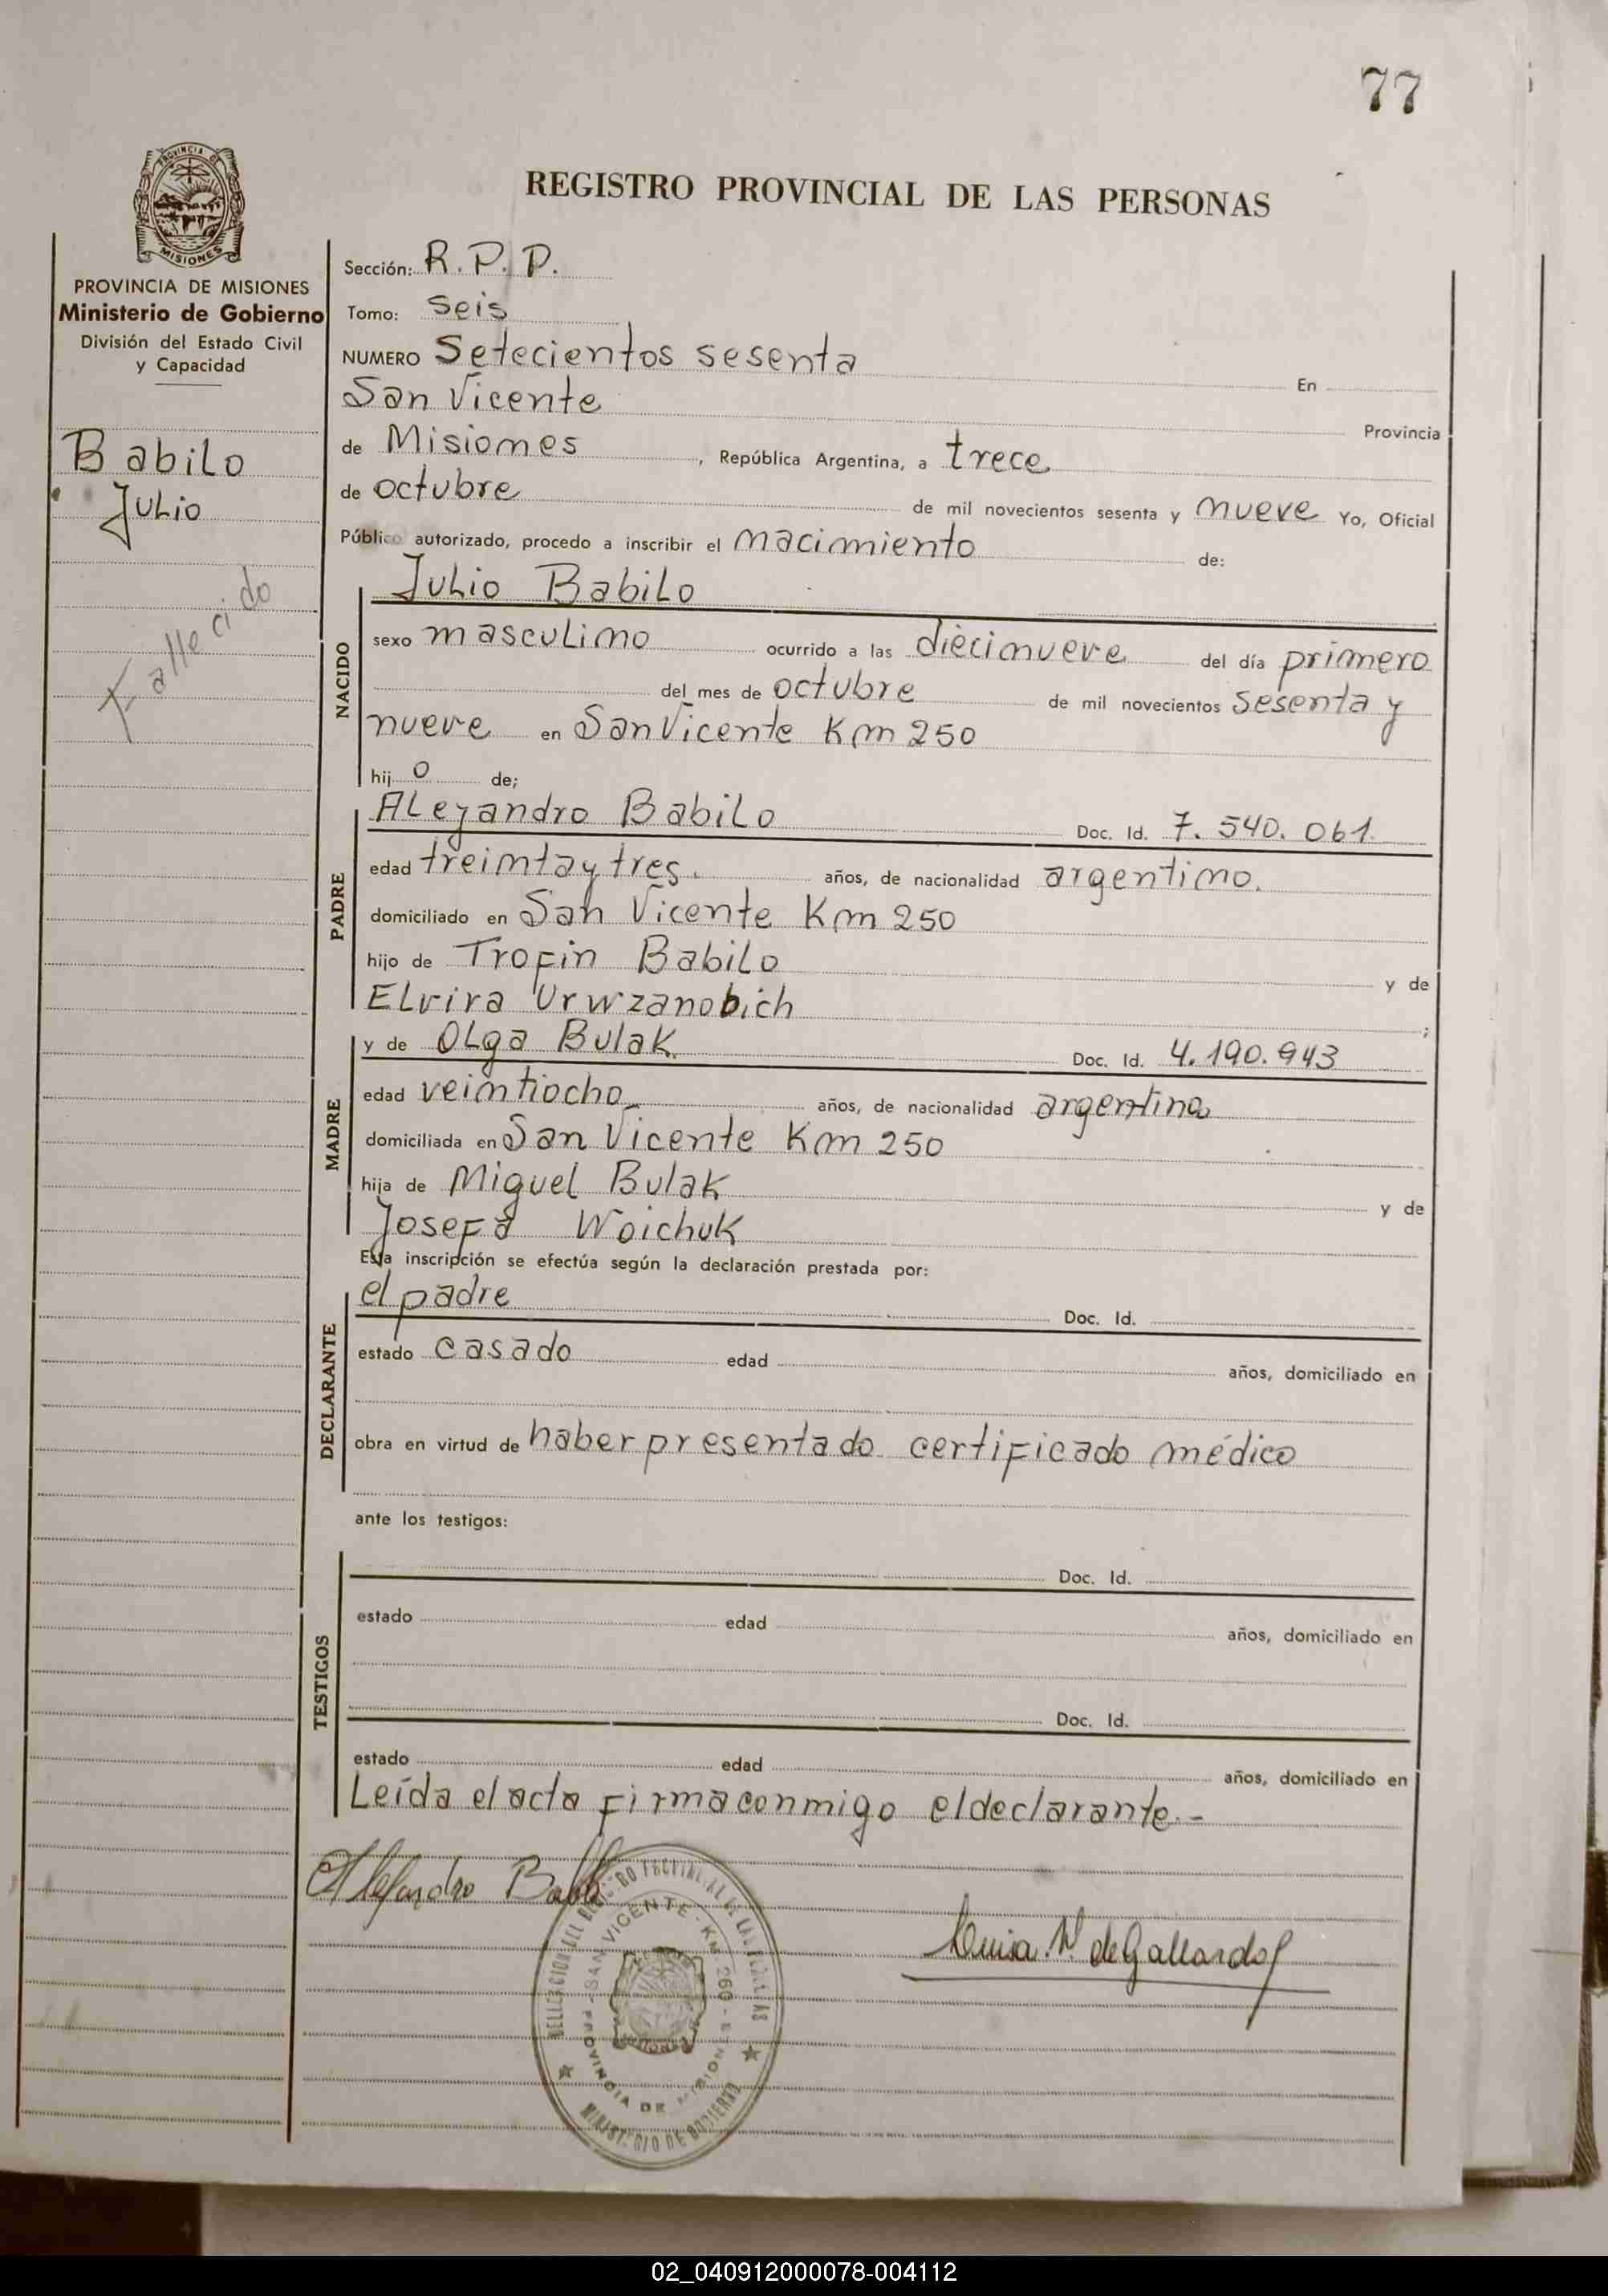 77
PROVINCIA DE
MISIONES
REGISTRO PROVINCIAL DE LAS PERSONAS
PROVINCIA DE MISIONES
Ministerio de Gobierno
División del Estado Civil
y Capacidad
Babilo
Julio
Fallecido
Sección: R.P.P.
Tomo: Seis
NUMERO Setecientos sesenta En
San Vicente Provincia
de Misiones, República Argentina, a trece
de octubre de mil novecientos sesenta y nueve Yo, Oficial
Público autorizado, procedo a inscribir el nacimiento de:
NACIDO
Julio Babilo
sexo masculino ocurrido a las diecinueve del día primero
del mes de octubre de mil novecientos sesenta y
nueve en San Vicente Km 250
hijo de;
PADRE
Alejandro Babilo Doc. Id. 7.540.061.
edad treinta y tres. años, de nacionalidad argentino.
domiciliado en San Vicente Km 250
hijo de Trofin Babilo y de
Elvira Urwzanobich ;
MADRE
y de Olga Bulak. Doc. Id. 4.190.943
edad veintiocho años, de nacionalidad argentina
domiciliada en San Vicente Km 250
hija de Miguel Bulak y de
Josefa Woichuk
Esta inscripción se efectúa según la declaración prestada por:
DECLARANTE
el padre Doc. Id.
estado casado edad años, domiciliado en
obra en virtud de haber presentado certificado médico
ante los testigos:
TESTIGOS
Doc. Id.
estado edad años, domiciliado en
Doc. Id.
estado edad años, domiciliado en
Leída el acta firma conmigo el declarante.-
Alejandro Babilo
SAN VICENTE - KM 260 -
PROVINCIA DE MISIONES
MINISTERIO DE GOBIERNO
Luisa N. de Gallardo
02_040912000078-004112